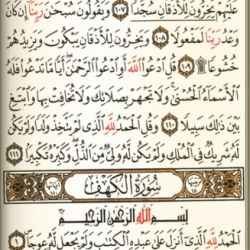 عَلَيْهِمْ يَخِرُّونَ لِلْأَذْقَانِ سُجَّدًا ١٠٧ وَيَقُولُونَ سُبْحَٰنَ رَبِّنَآ إِن كَانَ
وَعْدُ رَبِّنَا لَمَفْعُولًا ١٠٨ وَيَخِرُّونَ لِلْأَذْقَانِ يَبْكُونَ وَيَزِيدُهُمْ
خُشُوعًا ١٠٩ قُلِ ٱدْعُوا۟ ٱللَّهَ أَوِ ٱدْعُوا۟ ٱلرَّحْمَٰنَ أَيًّا مَّا تَدْعُوا۟ فَلَهُ
ٱلْأَسْمَآءُ ٱلْحُسْنَىٰ وَلَا تَجْهَرْ بِصَلَاتِكَ وَلَا تُخَافِتْ بِهَا وَٱبْتَغِ
بَيْنَ ذَٰلِكَ سَبِيلًا ١١٠ وَقُلِ ٱلْحَمْدُ لِلَّهِ ٱلَّذِى لَمْ يَتَّخِذْ وَلَدًا وَلَمْ يَكُن
لَّهُۥ شَرِيكٌ فِى ٱلْمُلْكِ وَلَمْ يَكُن لَّهُۥ وَلِىٌّ مِّنَ ٱلذُّلِّ وَكَبِّرْهُ تَكْبِيرًۢا ١١١
سُورَةُ الْكَهْفِ
بِسْمِ ٱللَّهِ ٱلرَّحْمَٰنِ ٱلرَّحِيمِ
ٱلْحَمْدُ لِلَّهِ ٱلَّذِىٓ أَنزَلَ عَلَىٰ عَبْدِهِ ٱلْكِتَٰبَ وَلَمْ يَجْعَل لَّهُۥ عِوَجَا ١